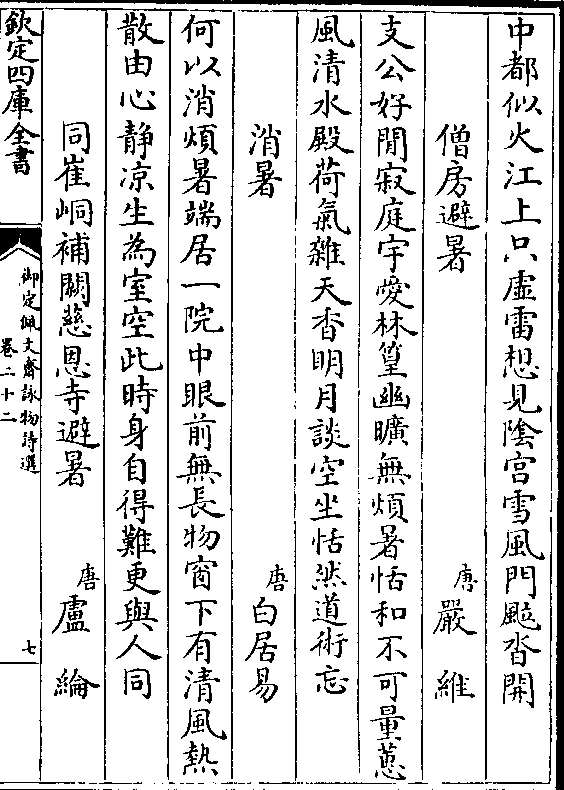 中都似火江上只虛雷想見陰宮雪風門颯沓開
僧房避暑 唐 嚴維
支公好閒寂庭宇愛林篁幽曠無煩暑恬和不可量蕙
風清水殿荷氣雜天香明月談空坐恬然道術忘
消暑 唐 白居易
何以消煩暑端居一院中眼前無長物窗下有清風熱
散由心靜凉生為室空此時身自得難更與人同
同崔峒補闕慈恩寺避暑 唐 盧綸
欽定四庫全書
御定佩文齋詠物詩選
卷二十二
七